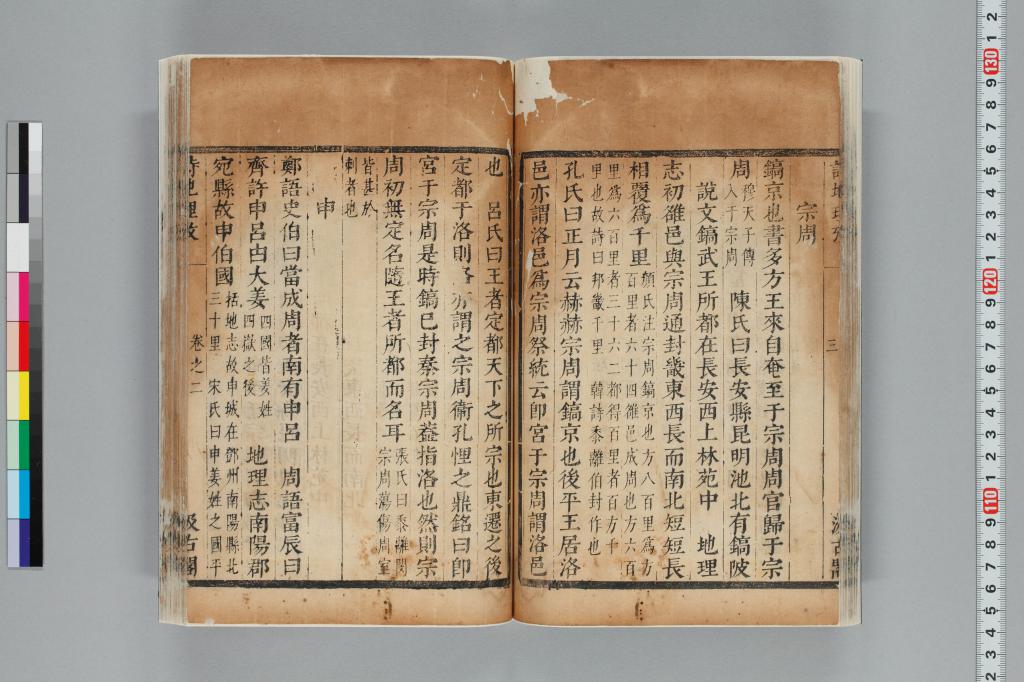 三
宗周
鎬京也書多方王來自奄至于宗周周官歸于宗
周
穆天子傳
入于宗周
陳氏曰長安縣昆明池北有鎬陂
說文鎬武王所都在長安西上林苑中　地理
志初雒邑與宗周通封畿東西長而南北短短長
相覆爲千里
顏氏注宗周鎬京也方八百里爲方
百里者六十四雒邑成周也方六百
里爲六百里者三十六二都得百里者百方千
里也故詩曰邦畿千里　韓詩黍離伯封作也
孔氏曰正月云赫赫宗周謂鎬京也後平王居洛
邑亦謂洛邑爲宗周祭統云卽宮于宗周謂洛邑
也　呂氏曰王者定都天下之所宗也東遷之後
定都于洛則洛亦謂之宗周衞孔悝之鼎銘曰卽
宮于宗周是時鎬已封秦宗周葢指洛也然則宗
周初無定名隨王者所都而名耳
張氏曰黍離閔
宗周蕩傷周室
皆甚於
刺者也
申
鄭語史伯曰當成周者南有申呂　周語富辰曰
齊許申呂由大姜
四國皆姜姓
四嶽之後
地理志南陽郡
宛縣故申伯國
括地志故申城在鄧州南陽縣北
三十里　宋氏曰申姜姓之國平
詩地理攷　卷之二　汲古閣